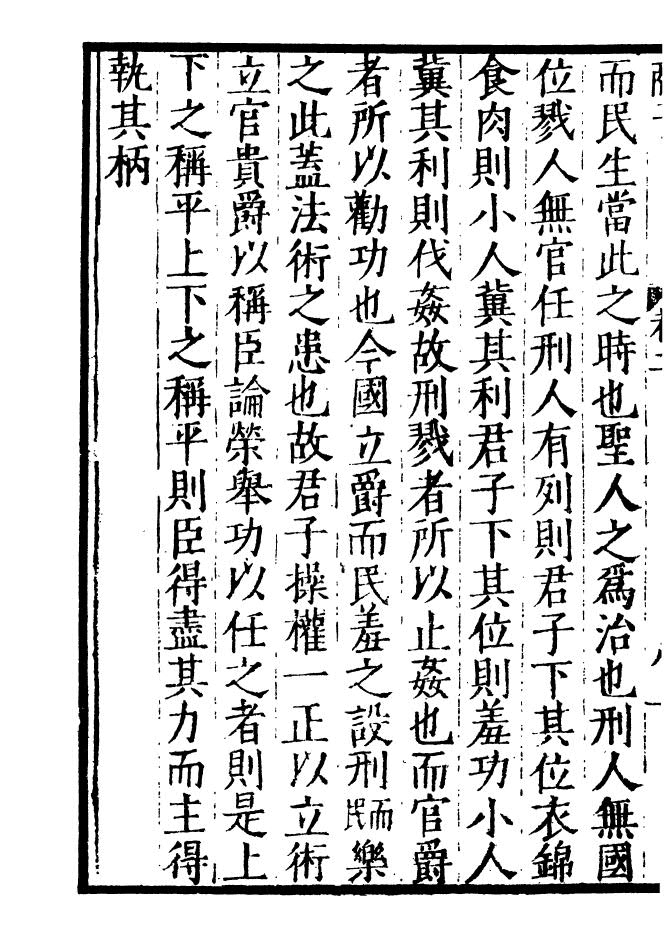 而民生當此之時也聖人之爲治也刑人無國
位戮人無官任刑人有列則君子下其位衣錦
食肉則小人冀其利君子下其位則羞功小人
冀其利則伐姦故刑戮者所以止姦也而官爵
者所以勸功也今國立爵而民羞之設刑而民樂
之此蓋法術之患也故君子操權一正以立術
立官貴爵以稱臣論榮舉功以任之者則是上
下之稱平上下之稱平則臣得盡其力而主得
執其柄